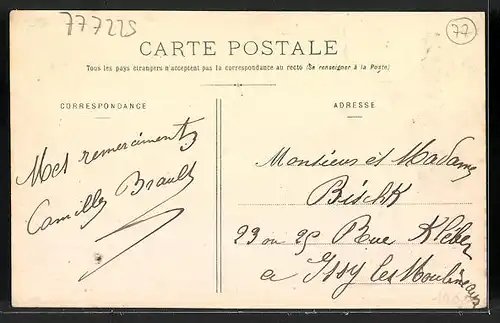 777225
77
CARTE POSTALE
Tous les pays étrangers n'acceptent pas la correspondance au recto (Se renseigner à la Poste)
CORRESPONDANCE
ADRESSE
Mes remerciments
Camille Brault
Monsieur et Madame
Bischk
23 ou 25 Rue Kléber
a Issy les Moulineaux